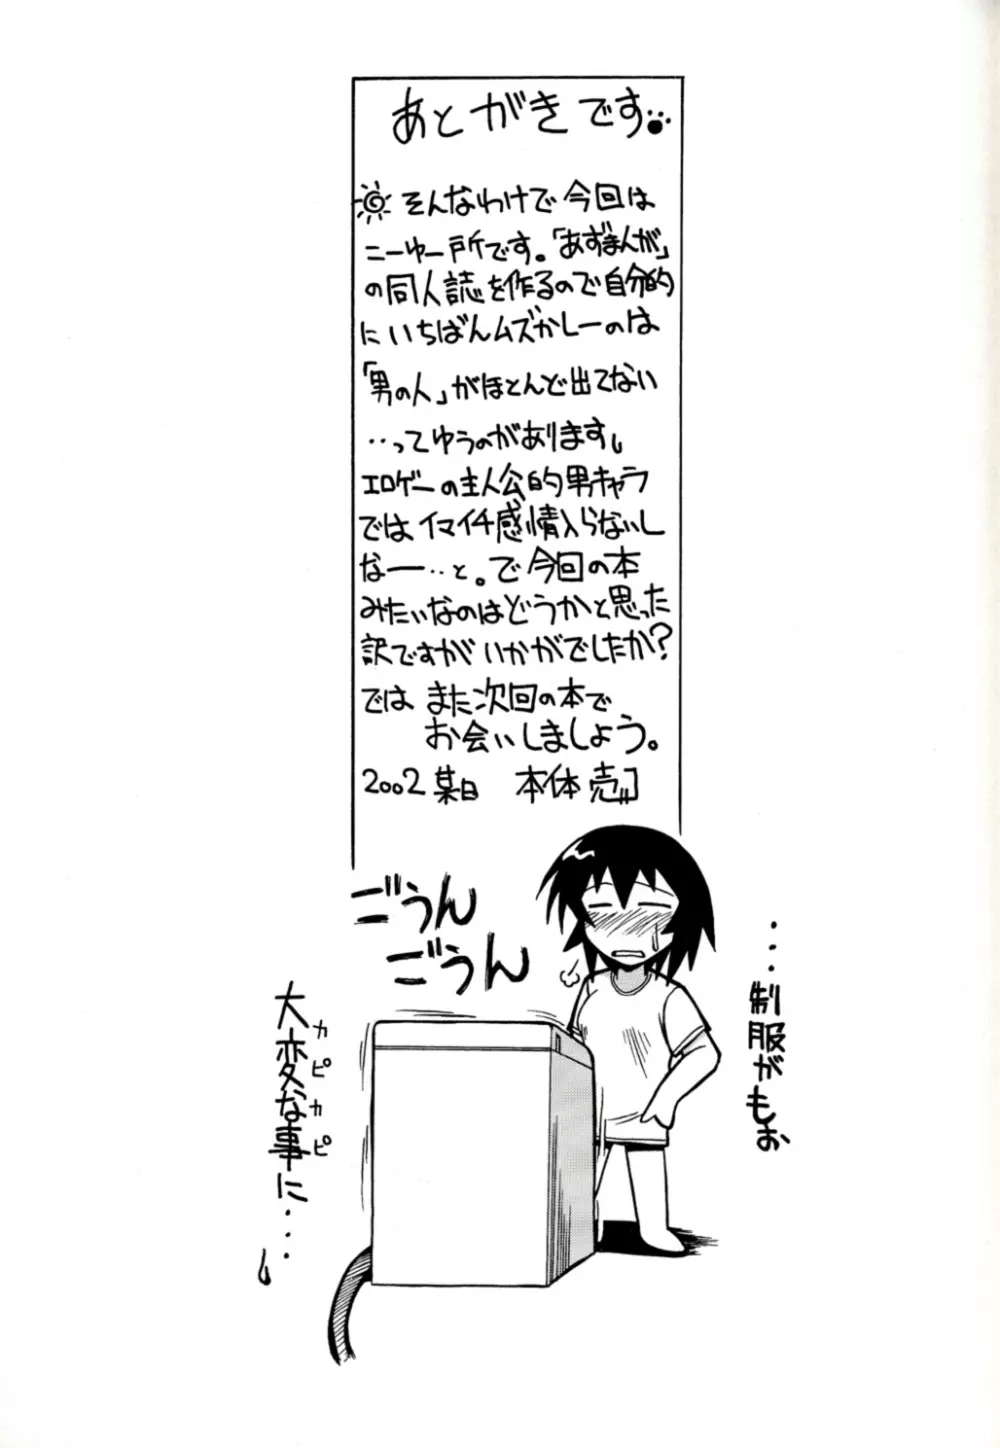 あとがきです
そんなわけで今回は
こーゆー所です。「あずまんが」
の同人誌を作るので自分的
にいちばんムズかしーのは
「男の人」がほとんど出てない
‥ってゆうのがあります。
エロゲーの主人公的男キャラ
ではイマイチ感情入らないし
なー‥と。で今回の本
みたいなのはどうかと思った
訳ですがいかがでしたか?
では また次回の本で
お会いしましょう。
2002 某日 本体売
ごうん
ごうん
・・・制服がもお
大変な事に・・・
カピカピ